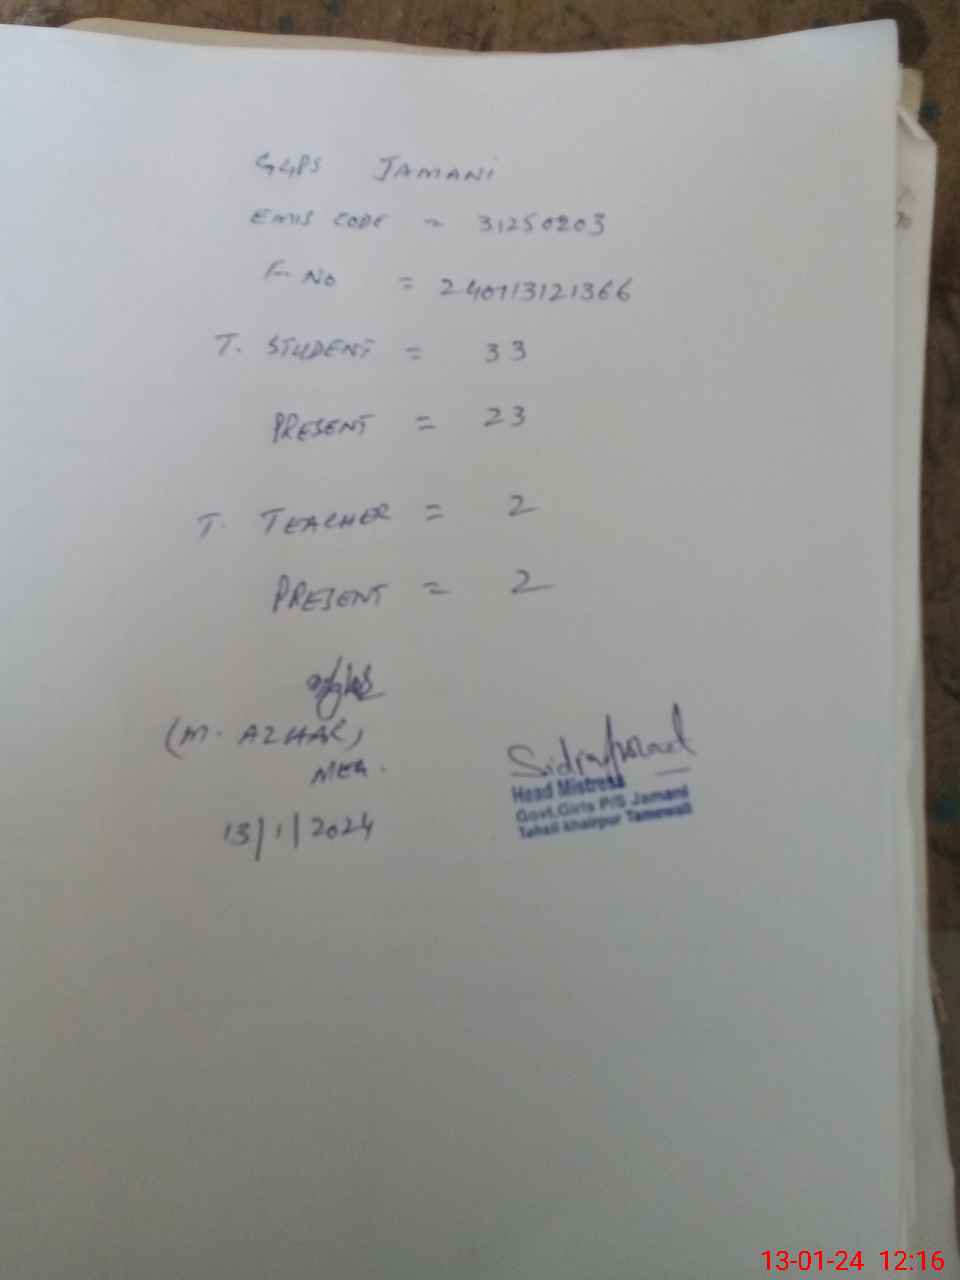 GGPS JAMANI
EMIS CODE = 31250203
F- NO = 240113121366
T. STUDENT = 33
PRESENT = 23
T. TEACHER = 2
PRESENT = 2
(M. AZHAR)
MEA.
13/1/2024
Head Mistress
Govt.Girls P/S Jamani
Tehsil khairpur Tamewali
13-01-24 12:16